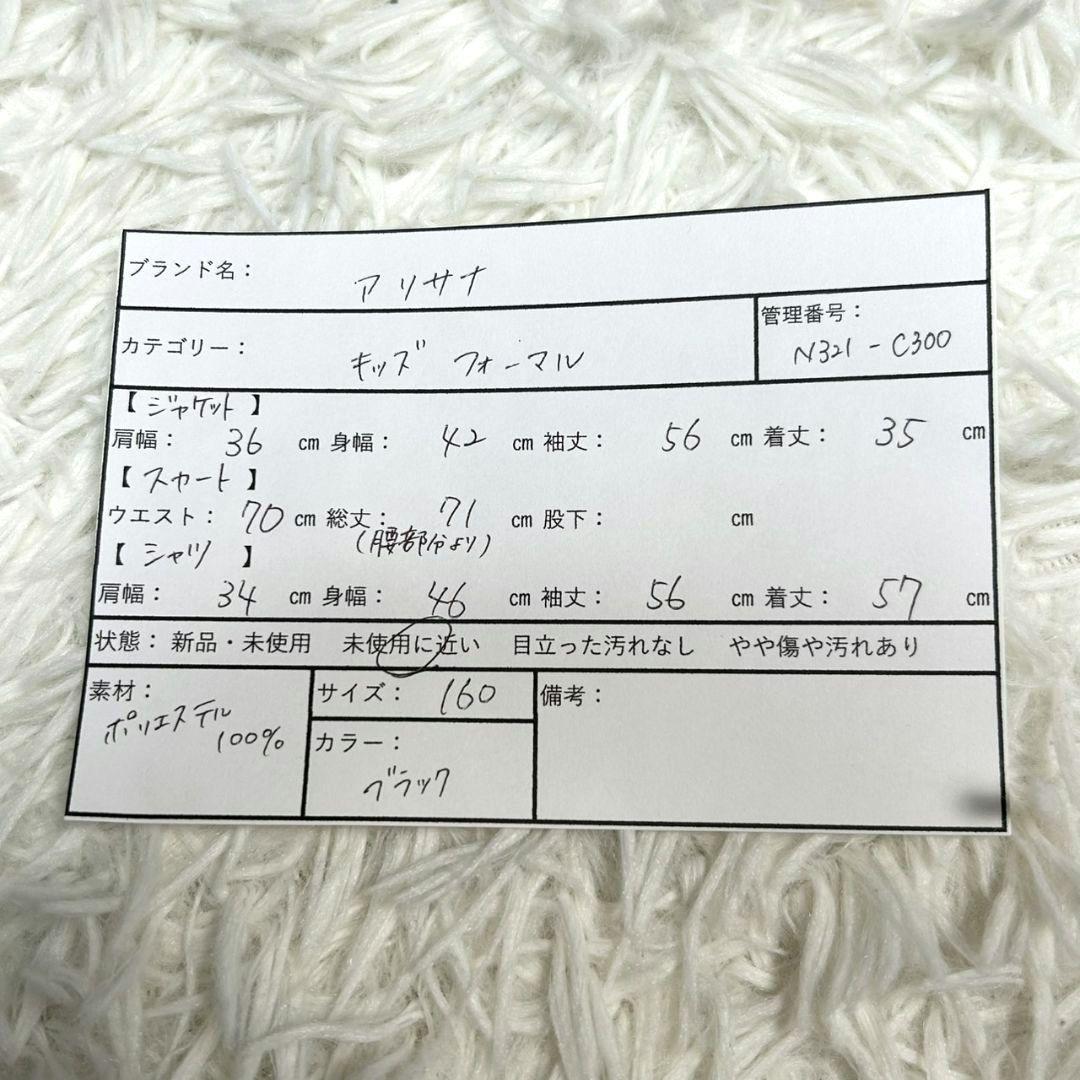 ブランド名： アリサナ
カテゴリー： キッズ フォーマル
管理番号： N321-C300
【 ジャケット 】
肩幅： 36 cm 身幅： 42 cm 袖丈： 56 cm 着丈： 35 cm
【 スカート 】
ウエスト： 70 cm 総丈： 71 cm 股下： cm
(腰部分より)
【 シャツ 】
肩幅： 34 cm 身幅： 46 cm 袖丈： 56 cm 着丈： 57 cm
状態： 新品・未使用 未使用に近い 目立った汚れなし やや傷や汚れあり
素材： ポリエステル 100%
サイズ： 160
カラー： ブラック
備考：